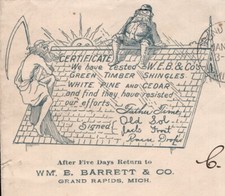 CERTIFICATE
We have tested W.E.B. & Co's
GREEN TIMBER SHINGLES
WHITE PINE AND CEDAR
and find they have resisted
our efforts.
Father Time
Old Sol
Jack Frost
Signed
Rain Drops
After Five Days Return to
WM. E. BARRETT & CO.
GRAND RAPIDS, MICH.
C.